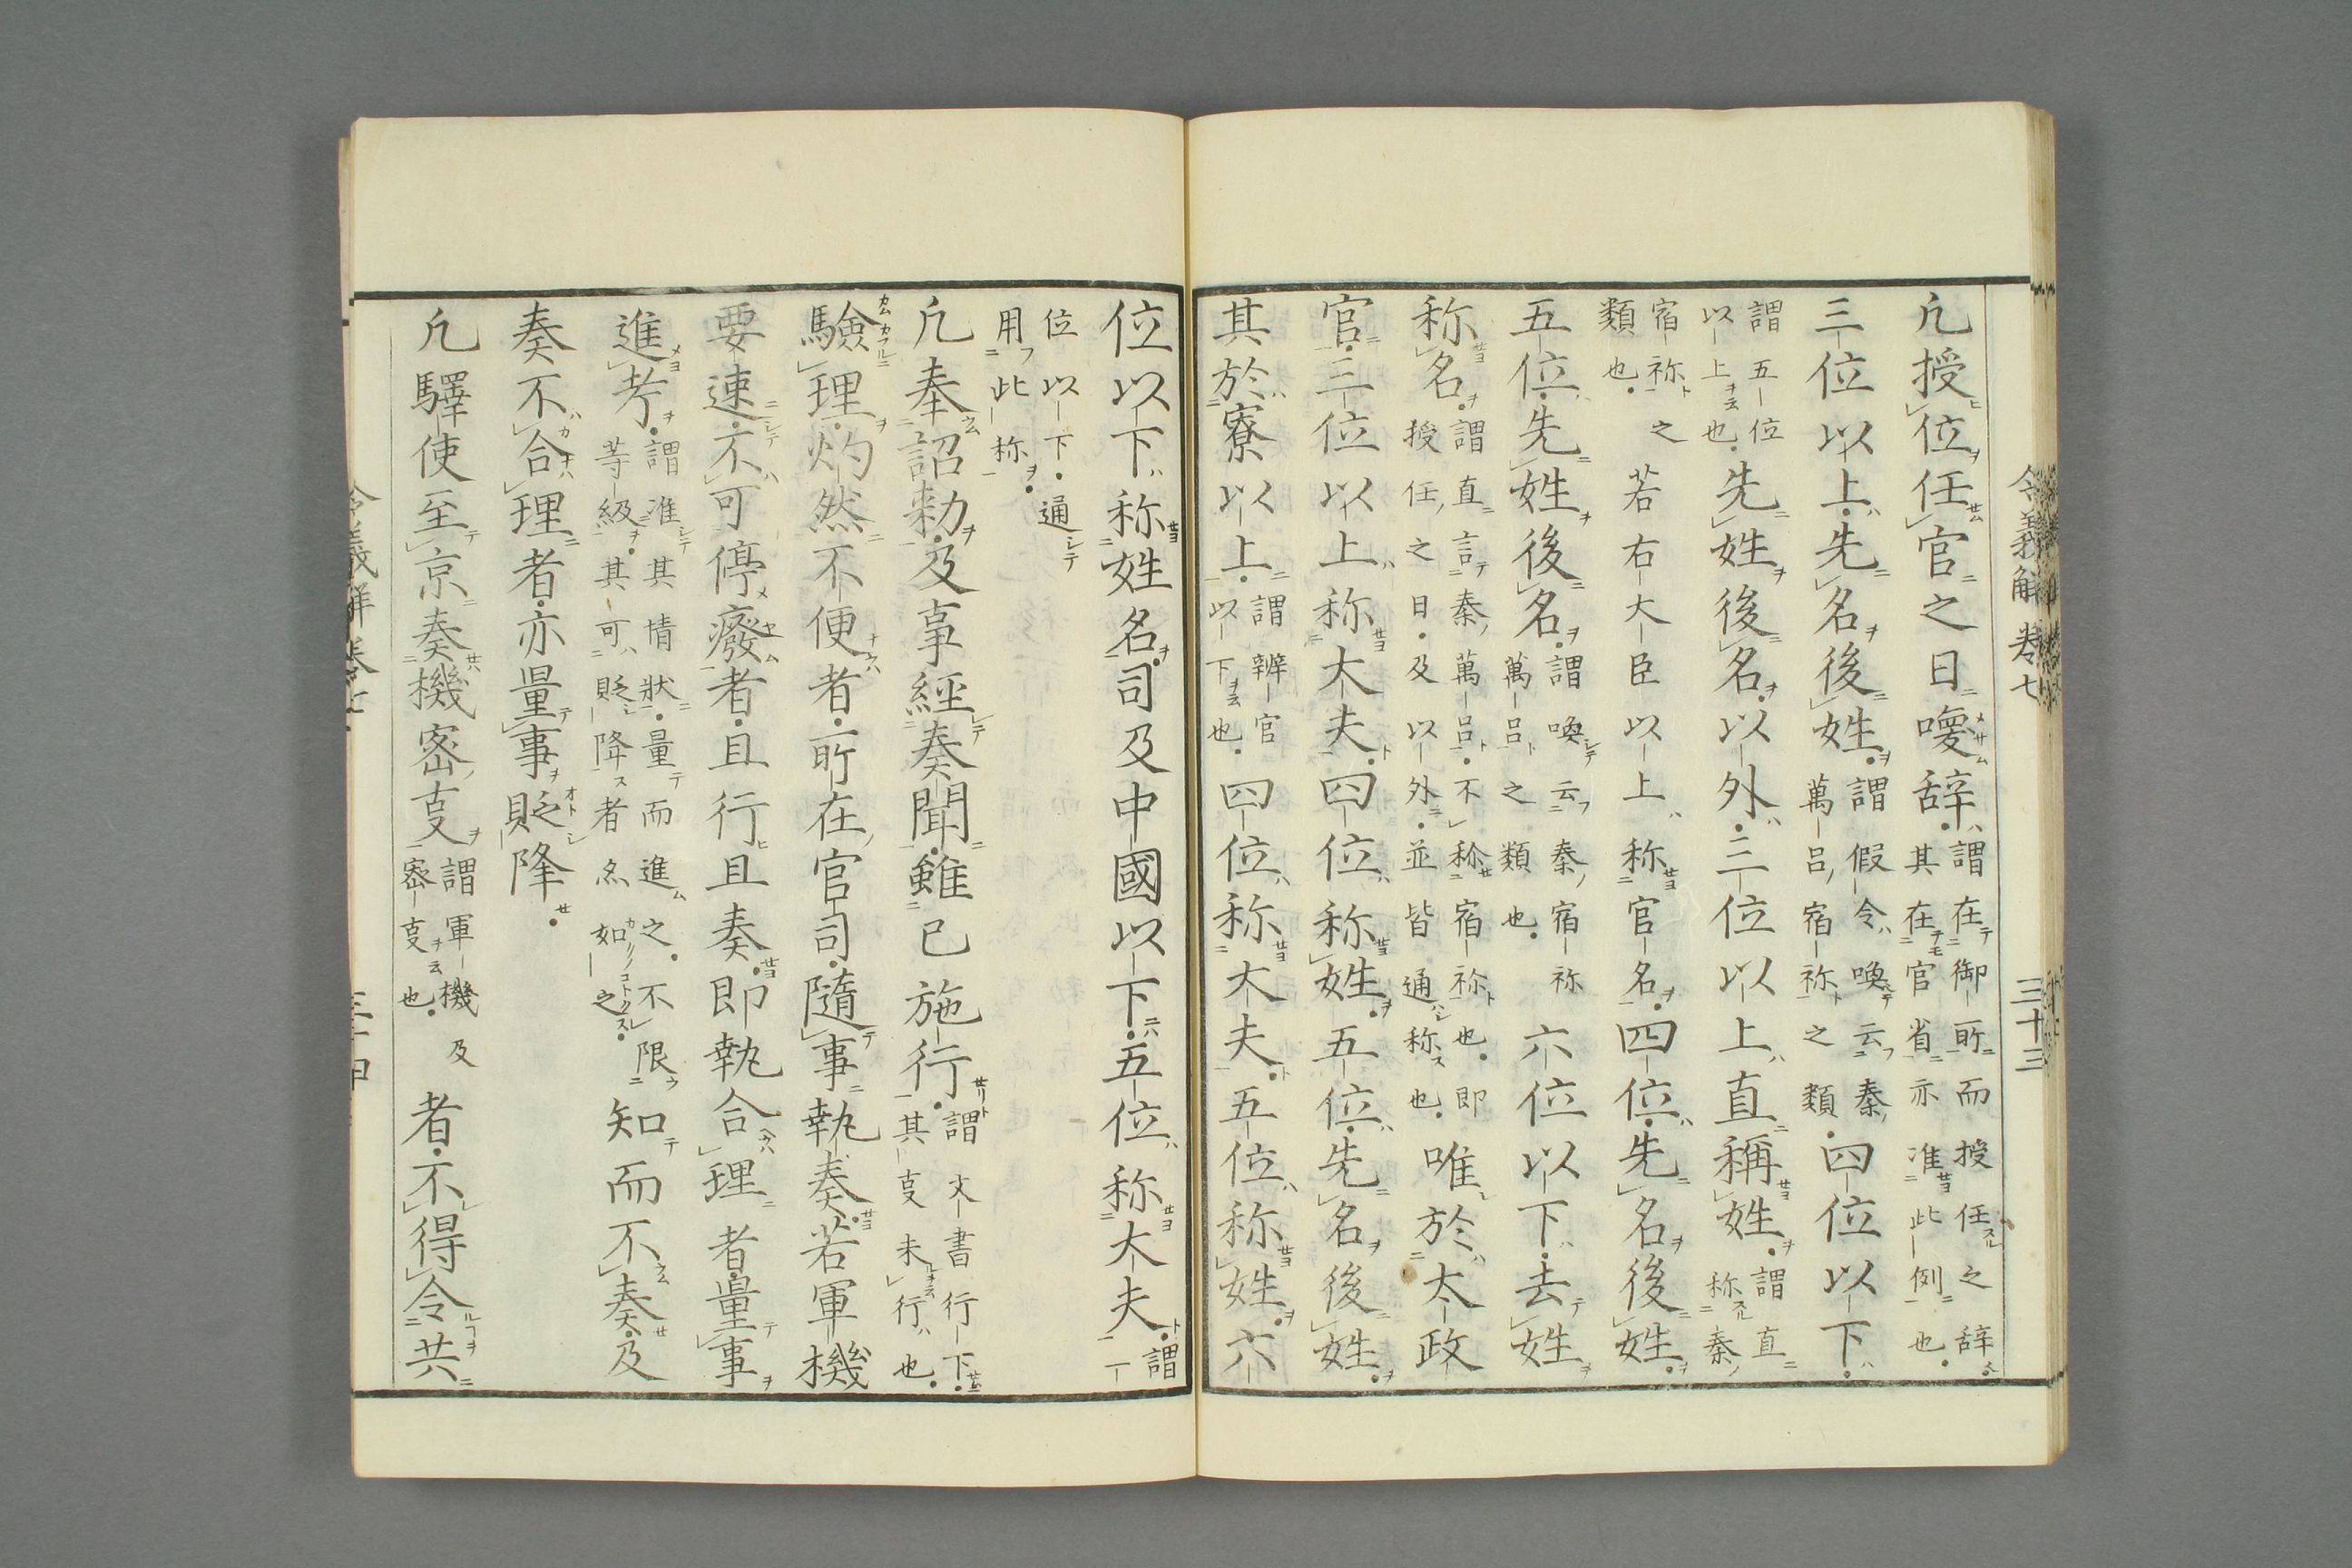 令義解 卷七 三十三
凢授位任官之日喚辞謂在御所而授任之辞其在官省亦准此例也
三位以上先名後姓謂假令喚云秦萬呂宿祢之類四位以下
謂五位以上也先姓後名以外三位以上直稱姓謂直称秦
宿祢之類也若右大臣以上称官名四位先名後姓
五位先姓後名謂喚云秦宿祢萬呂之類也六位以下去姓
称名謂直言秦萬呂不称宿祢也即授任之日及以外並皆通称也唯於太政
官三位以上称大夫四位称姓五位先名後姓
其於寮以上謂辨官以下也四位称大夫五位称姓六
位以下称姓名司及中國以下五位称大夫謂一
位以下通用此称
凢奉詔勅及事經奏聞雖已施行謂文書行下其事未行也
驗理灼然不便者所在官司隨事執奏若軍機
要速不可停廢者且行且奏即執合理者量事
進考謂准其情狀量而進之不限等級其可貶降者亦如之知而不奏及
奏不合理者亦量事貶降
凢驛使至京奏機密事謂軍機及密事也者不得令共